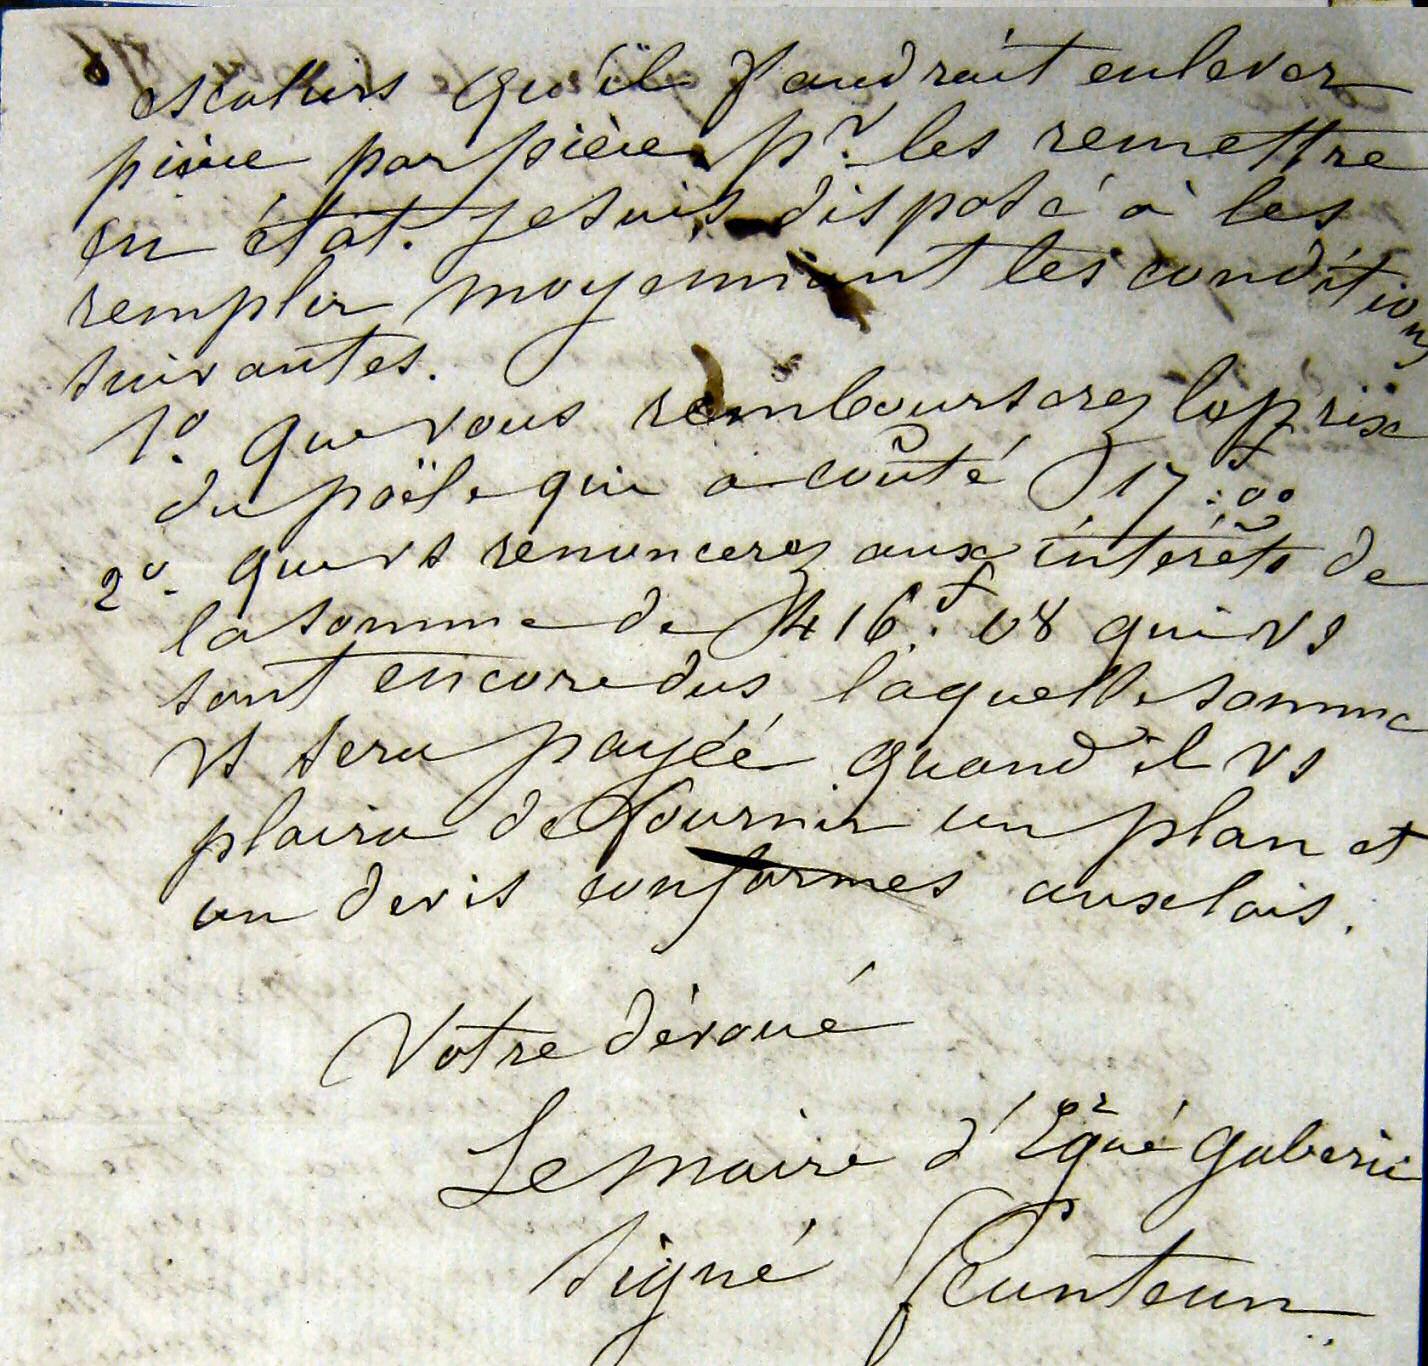 escaliers qu'il faudrait enlever
pièce par pièce pr. les remettre
en état. Je suis disposé à les
remplir moyennant les conditions
suivantes.
1o. que vous rembourserez le prix
du poële qui a coûté 17f:00
2o. que vs renoncerez aux intérêts de
la somme de 416f.08 qui vs
sont encore dus, laquelle somme
vs sera payéé quand il vs
plaira de fournir un plan et
un devis conformes aux lois.
Votre dévoué
Le maire d'Ergué gabéric
signé